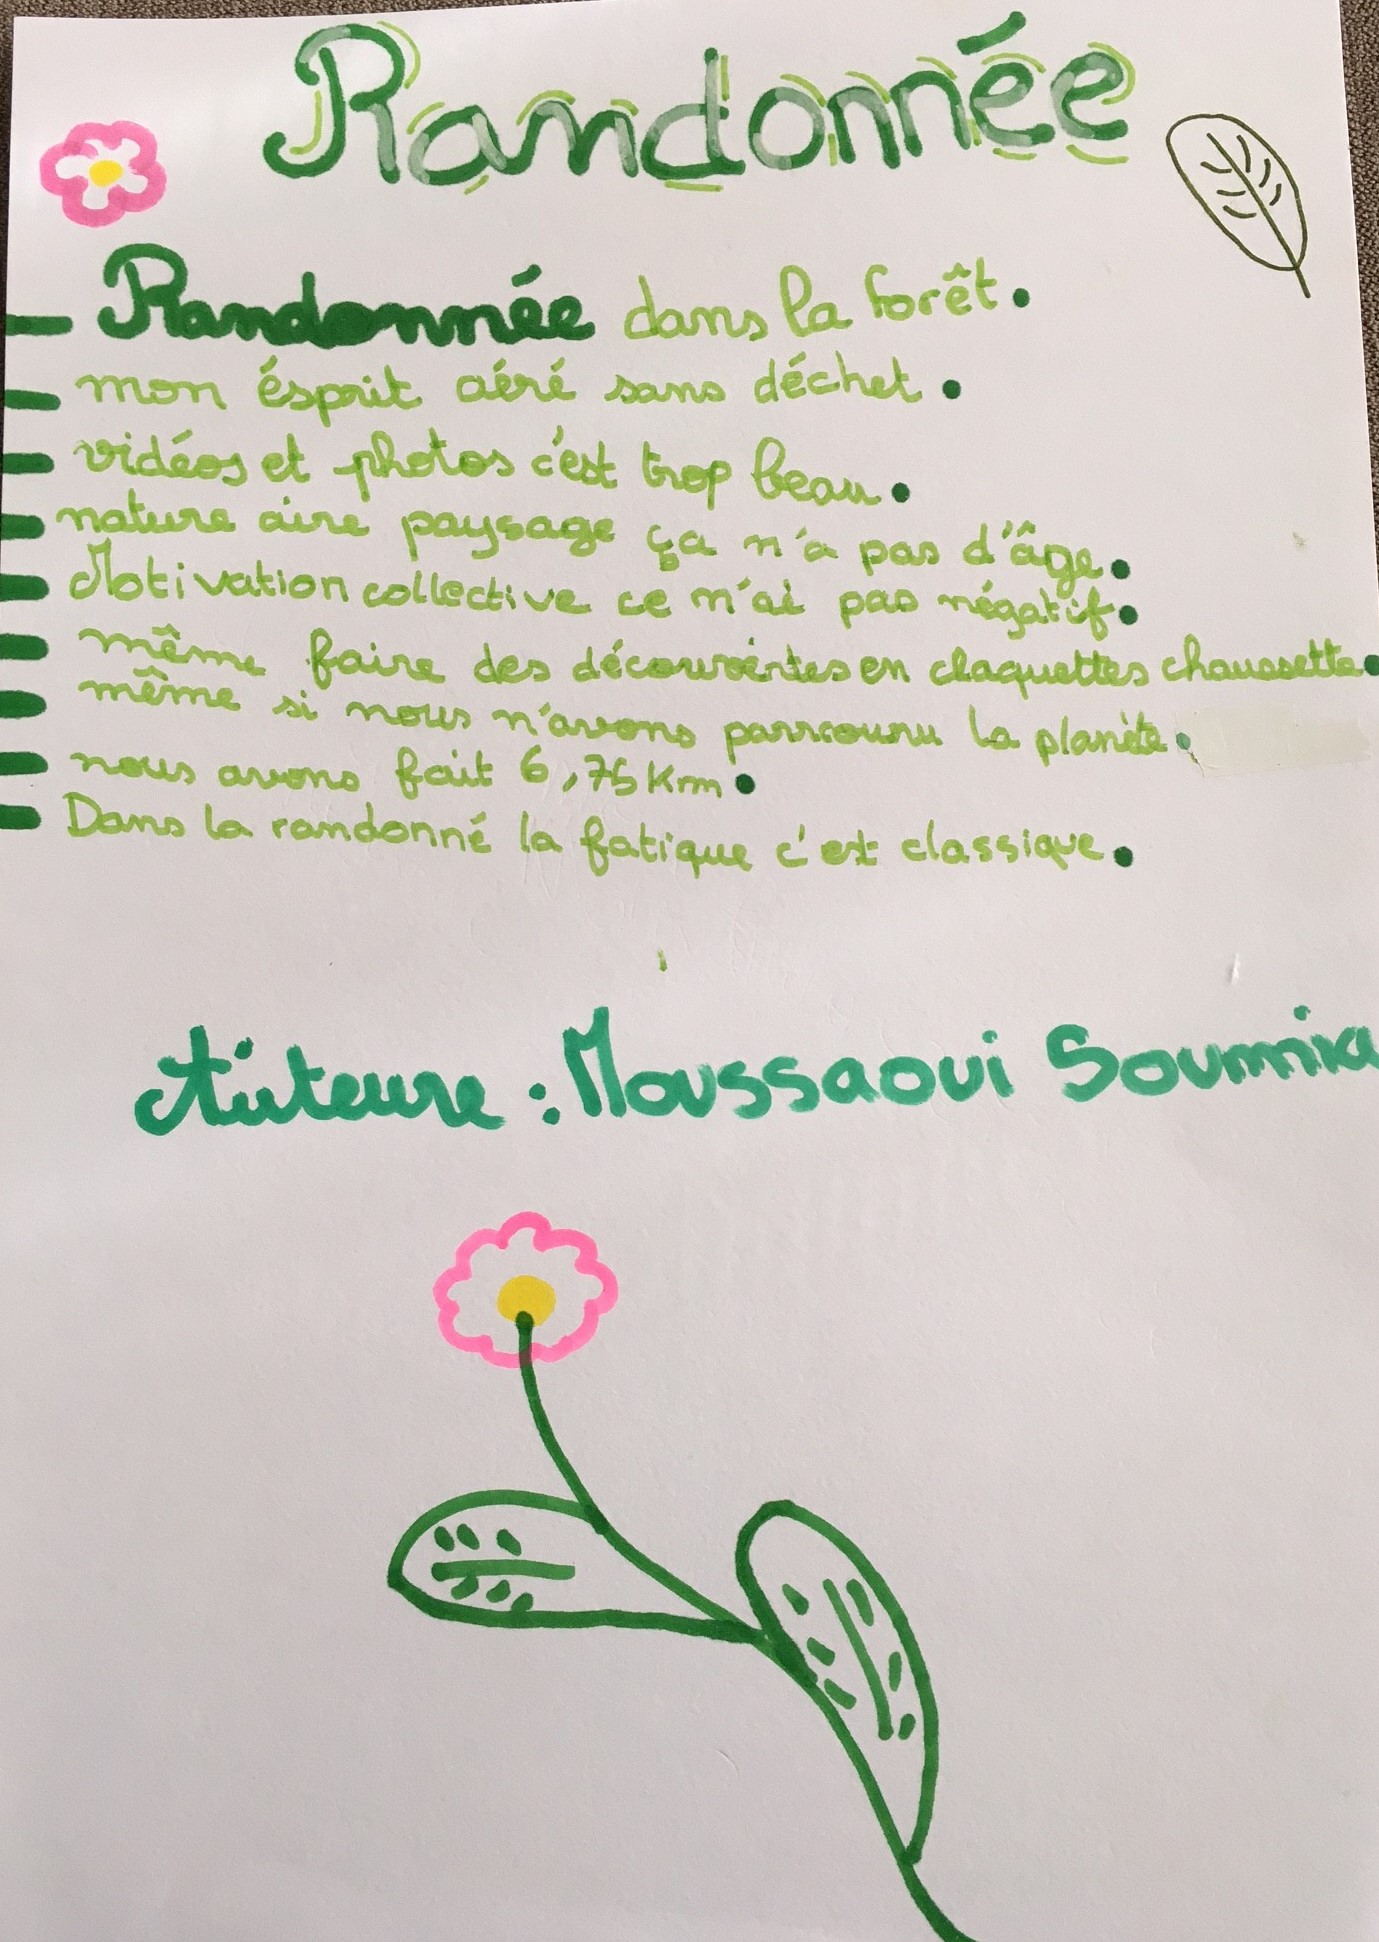 Randonnée
Randonnée dans la forêt.
mon ésprit aéré sans déchet.
vidéos et photos c'est trop beau.
nature aire paysage ça n'a pas d'âge.
Motivation collective ce n'ai pas négatif.
même faire des découvertes en claquettes chaussette.
même si nous n'avons parrcouru la planète.
nous avons fait 6,75 Km.
Dans la randonné la fatique c'est classique.
Auteure : Moussaoui Soumia